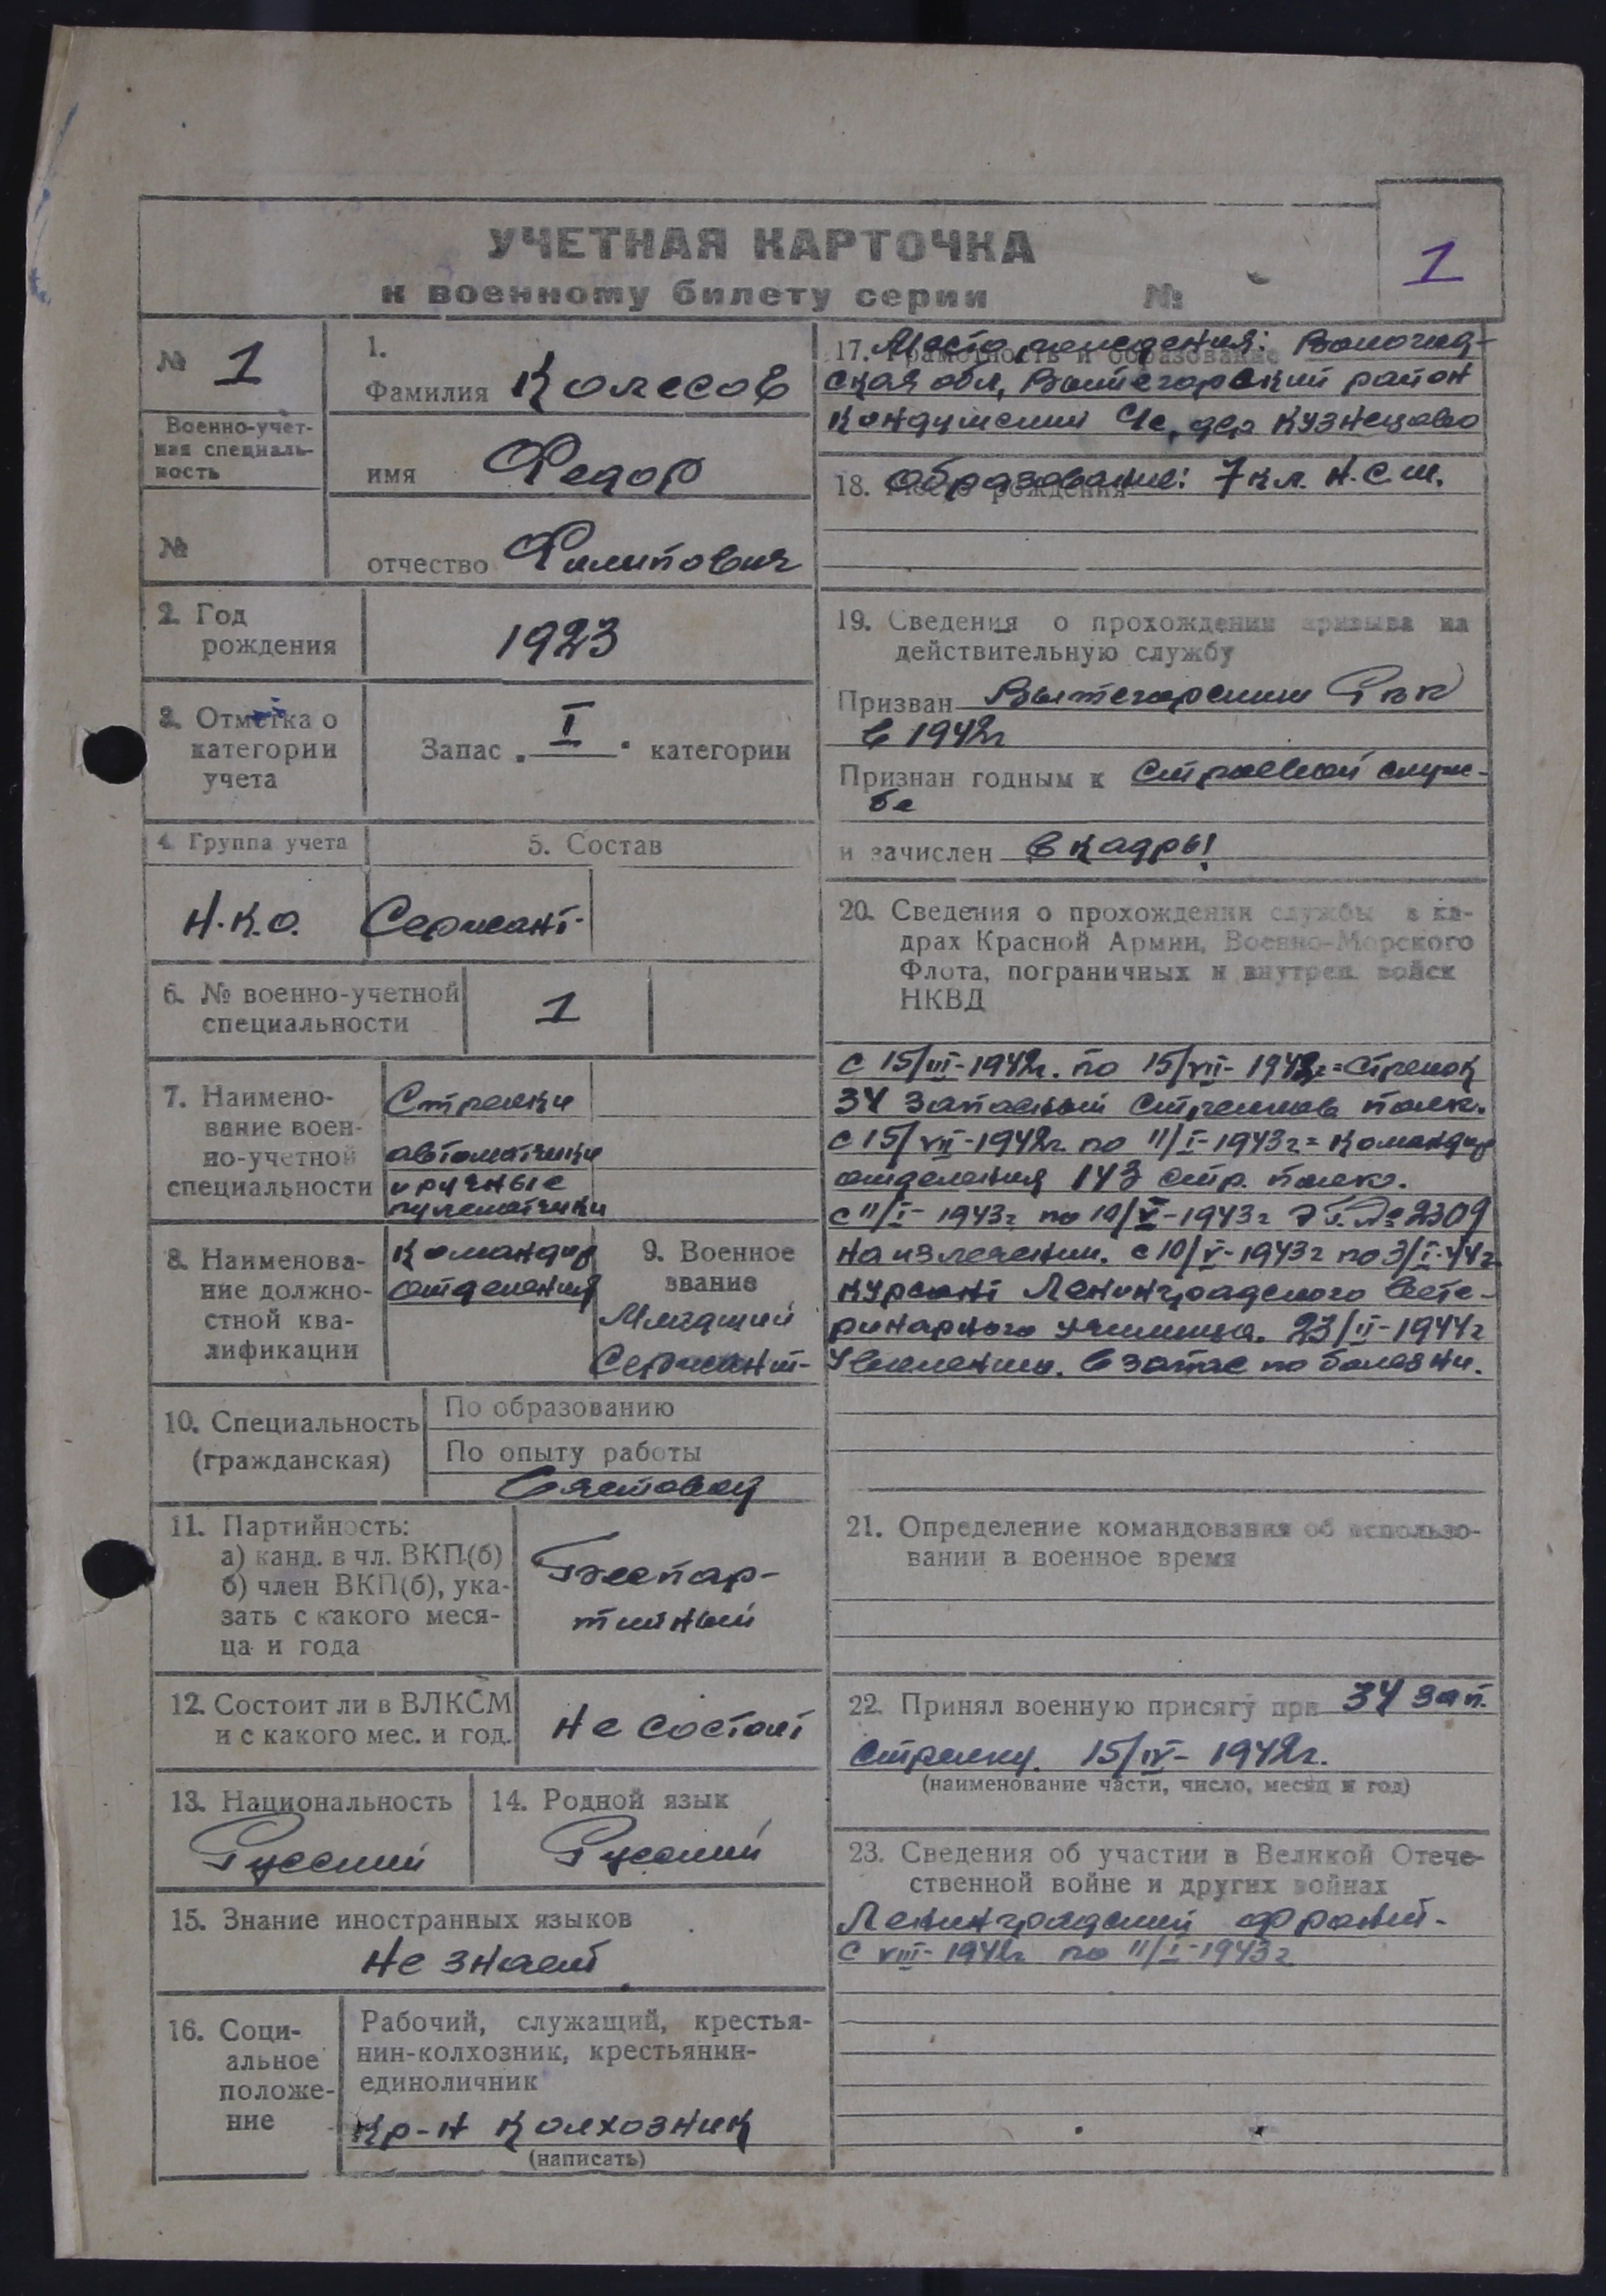 УЧЕТНАЯ КАРТОЧКА
к военному билету серии №
1
№ 1
Военно-учет-
ная специаль-
ность
№
1.
Фамилия Колесов
имя Федор
отчество Филипович
2. Год
рождения
1923
3. Отметка о
категории
учета
Запас „I“ категории
4. Группа учета
5. Состав
Н.К.О.
Сержант
6. № военно-учетной
специальности
1
7. Наимено-
вание воен-
но-учетной
специальности
Стрелки
автоматчики
и ручные
пулеметчики
8. Наименова-
ние должно-
стной ква-
лификации
Командир
отделения
9. Военное
звание
Младший
Сержант
10. Специальность
(гражданская)
По образованию
По опыту работы
11. Партийность:
а) канд. в чл. ВКП(б)
б) член ВКП(б), ука-
зать с какого меся-
ца и года
Беспар-
тийный
12. Состоит ли в ВЛКСМ
и с какого мес. и год.
Не состоит
13. Национальность
Русский
14. Родной язык
Русский
15. Знание иностранных языков
Не знает
16. Соци-
альное
положе-
ние
Рабочий, служащий, крестья-
нин-колхозник, крестьянин-
единоличник
Кр-н колхозник
(написать)
17. Грамотность и образование
Место рождения: Вологод-
ская обл, Вытегорский район
Кондушский с/с, дер Кузнецово
18. Место рождения
Образование: 7 кл. Н.С.Ш.
19. Сведения о прохождении призыва на
действительную службу
Призван Вытегорским РВК
в 1942г
Признан годным к строевой служ-
бе
и зачислен в кадры
20. Сведения о прохождении службы в ка-
драх Красной Армии, Военно-Морского
Флота, пограничных и внутрен. войск
НКВД
с 15/III-1942г. по 15/VII-1942г = стрелок
34 запасный стрелков полк.
с 15/VII-1942г. по 11/I-1943г = командир
отделения 143 стр. полка.
с 11/I-1943г по 10/V-1943г Э.Г. № 2309
на излечении. с 10/V-1943г по 3/I-44г
курсант Ленинградского Вете-
ринарного училища. 23/II-1944г
Увеленены. в запас по болезни.
21. Определение командования об использо-
вании в военное время
22. Принял военную присягу при 34 зап.
стрелку. 15/IV-1942г.
(наименование части, число, месяц и год)
23. Сведения об участии в Великой Отече-
ственной войне и других войнах
Ленинградский фронт.
с VIII-1942г по 11/I-1943г